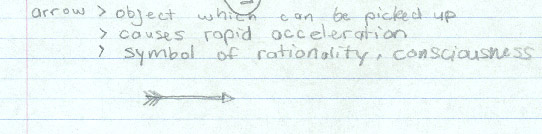 arrow > object which can be picked up
> causes rapid acceleration
> symbol of rationality, consciousness